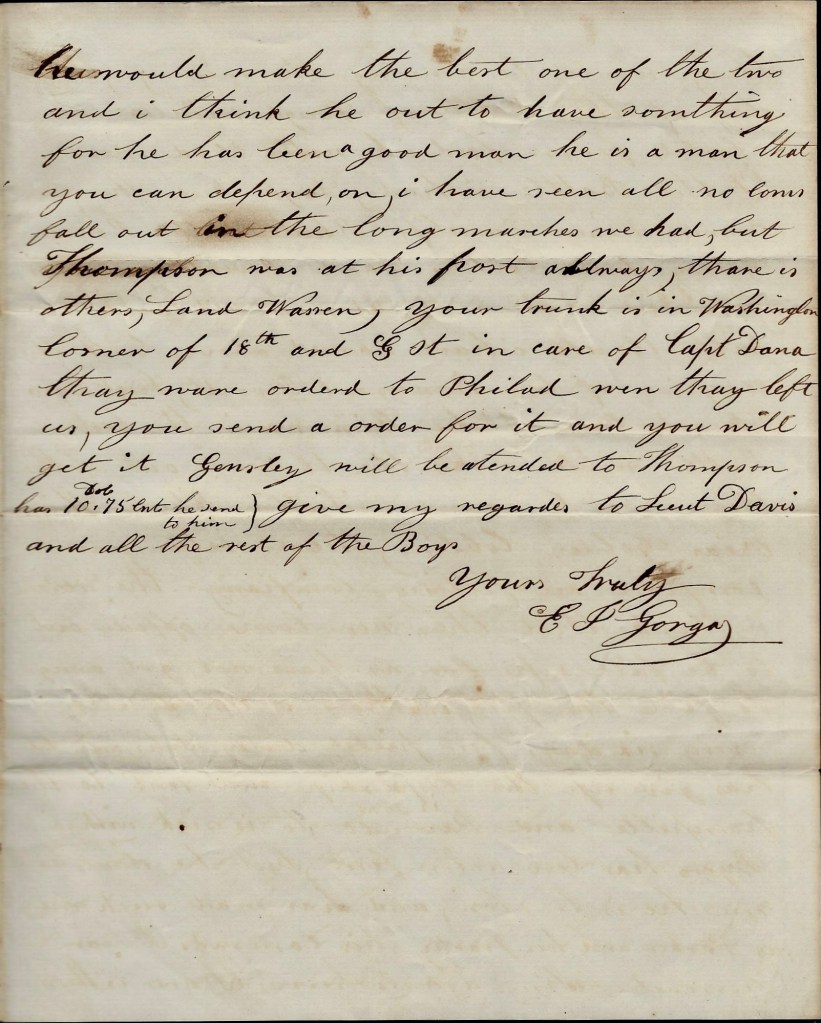 he would make the best one of the two
and i think he out to have somthing
for he has been a good man he is a man that
you can depend, on, i have seen all no coms
fall out in the long marches we had, but
Thompson was at his post allways, thare is
others, Land Warren, your trunk is in Washington
Corner of 18th and G St in care of Capt Dana
thay ware orderd to Philad wen thay left
us, you send a order for it and you will
get it Gensley will be atended to Thompson
has 10.75 Dol Cnt he send to him } give my regardes to Lieut Davis
and all the rest of the Boys
Yours Truly
E J Gorgas